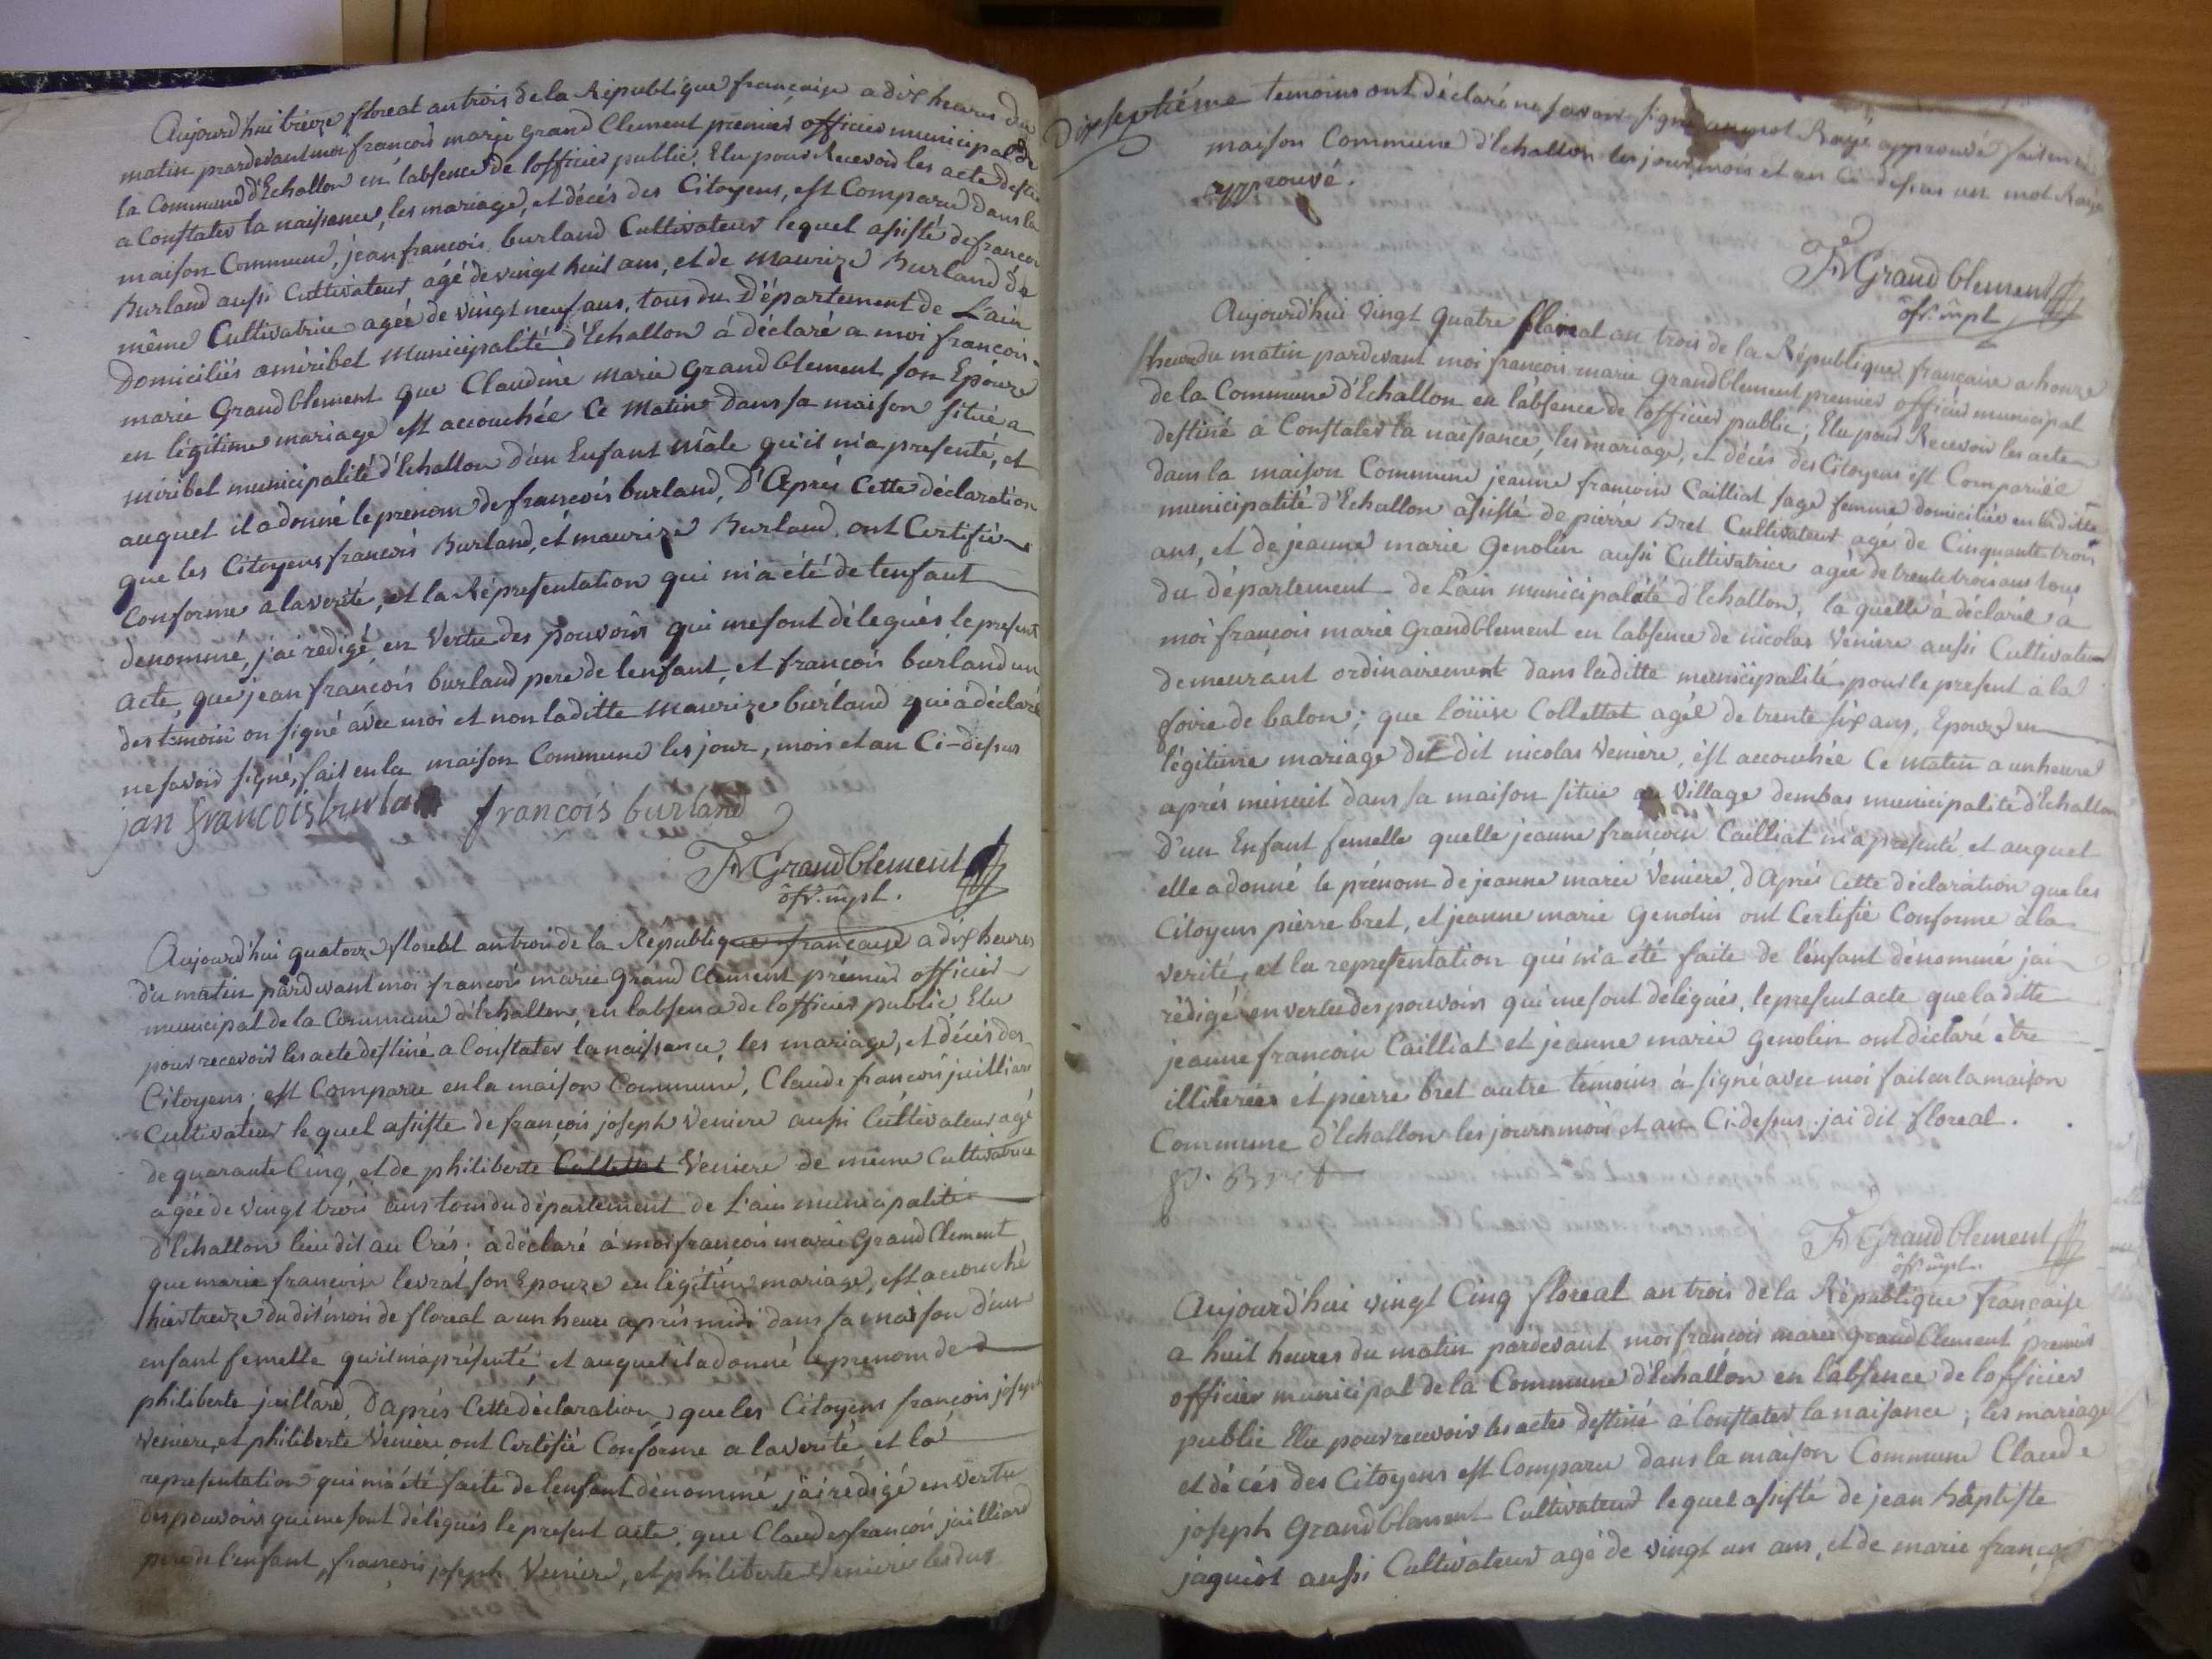 Aujourd'hui treize floreal an trois de la République française a dix heures du
matin pardevant moi francois marie grand Clement premier officier municipal de
la Commune d'Echallon en l'absence de lofficier public, Elu pour Recevoir les acte destiné
a Constater la naissance, les mariage, et décés des Citoyens, est Comparu dans la
maison Commune, jean francois burland Cultivateur lequel assisté de francois
Burland aussi Cultivateur agé de vingt huit ans, et de Maurize Burland de
même Cultivatrice agée de vingt neuf ans, tous du Département de L'ain
Domiciliés a miribel Municipalité d'Echallon à déclaré a moi francois
marie Grandblement que Claudine marie grandblement son Epouze
en légitime mariage est accouchée Ce Matin dans sa maison situé a
miribel municipalité d'Echallon d'un Enfant Mâle qu'il m'a presenté, et
auquel il a donné le prenom de francois burland, D'Après Cette déclaration
que les Citoyens francois Burland, et maurize Burland ont Certifié
Conforme a la verité, et la Répresentation qui m'a été de l'enfant
denommé, j'ai redigé en Vertu des pouvoirs qui me sont délegués le present
acte, que jean francois burland pere de l'enfant, et francois burland un
des temoin on signé avec moi et non laditte Maurize burland qui a déclaré
ne savoir signé, fait en la maison Commune les jour, mois et an Ci-dessus
jan francois burland francois burland
FM Grandblement
off. mpl.
Aujourd'hui quatorze floreal an trois de la Republique française a dix heures
du matin pardevant moi francois marie grand Clement prémier officier
municipal de la Commune d'Echallon, en labsence de lofficier public Elu
pour recevoir les acte destiné a Constater la naissance, les mariage, et décés des
Citoyens; est Comparu en la maison Commune, Claude françois juilliard
Cultivateur lequel assiste de françois joseph Veniere aussi Cultivateur agé
de quarante Cinq, et de philiberte Collettat Veniere de meme Cultivatrice
agée de vingt trois ans tous du département de L'ain municipalité
d'Echallon lieu dit au Crés; à déclaré à moi francois marie Grand Clement
que marie francoise levrat son Epouze en légitime mariage, est accouché
hier treize du dit mois de floreal a un heure après midi dans sa maison d'un
enfant femelle qu'il m'a présenté et auquel il a donné le prenom de
philiberte juillard, D'après Cette déclaration, que les Citoyens francois joseph
Veniere, et philiberte Vénière ont Certifié Conforme a la verité et la
representation qui m'a été faite de l'enfant dénommé j'ai rédigé en vertu
des pouvoirs qui me sont délegués le present acte, que Claude francois juilliard
pere de l'enfant, francois joseph Venière, et philiberte Veniere les dus
Dix septiéme temoins ont déclaré ne savoir signé un mot Rayé approuvé fait en la
maison Commune d'Echallon les jour, mois et an Ci-dessus un mot Rayé
approuvé.
FM Grandblement
off. mpl
Aujourd'hui vingt quatre floreal an trois de la République française a honze
heure du matin pardevant moi francois marie grandblement premier officier municipal
de la Commune d'Echallon en l'absence de l'officier public; Elu pour Recevoir les acte
destiné à Constater la naissance, les mariage, et décés des Citoyens est Comparuée
dans la maison Commune jeanne francoise Cailliat sage femme domiciliée en laditte
municipalité d'Echallon assisté de pierre Bret Cultivateur agé de Cinquante trois
ans, et de jeanne marie Genolin aussi Cultivatrice agée de trente trois ans tous
du département de L'ain municipalité d'Echallon, la quelle à déclaré à
moi francois marie Grandblement en labsence de nicolas Veniere aussi Cultivateur
demeurant ordinairement dans laditte municipalité, pour le present à la
foire de balon; que Loüise Collettat agée de trente six ans, Epouze en
légitime mariage du dit nicolas Veniere, est accouchée Ce matin a un heure
après minuit dans sa maison situé au Village dembas municipalité d'Echallon
d'un Enfant femelle quelle jeanne francoise Cailliat m'a presenté et auquel
elle a donné le prénom de jeanne marie Veniere, d'Après Cette déclaration que les
Citoyens pierre bret, et jeanne marie Genolin ont Certifié Conforme à la
verité, et la representation qui m'a été faite de l'enfant dénommé jai
rédigé en vertu des pouvoirs qui me sont délegués, le present acte que laditte
jeanne francoise Cailliat et jeanne marie genolin ont déclaré être
illiterées et pierre bret autre temoins à signé avec moi fait en la maison
Commune d'Echallon les jours mois et an Ci-dessus. jai dit floreal.
p. Bret
FM Grandblement
off. mpl.
Aujourd'hui vingt Cinq floreal an trois de la République française
a huit heures du matin pardevant moi francois marie grand Clement premier
officier municipal de la Commune d'Echallon en l'absence de lofficier
public Elu pour recevoir les actes destiné à Constater la naissance; les mariage
et décés des Citoyens est Comparu dans la maison Commune Claude
joseph Grandblement Cultivateur lequel assisté de jean Baptiste
jaquiot aussi Cultivateur agé de vingt un ans, et de marie francoise